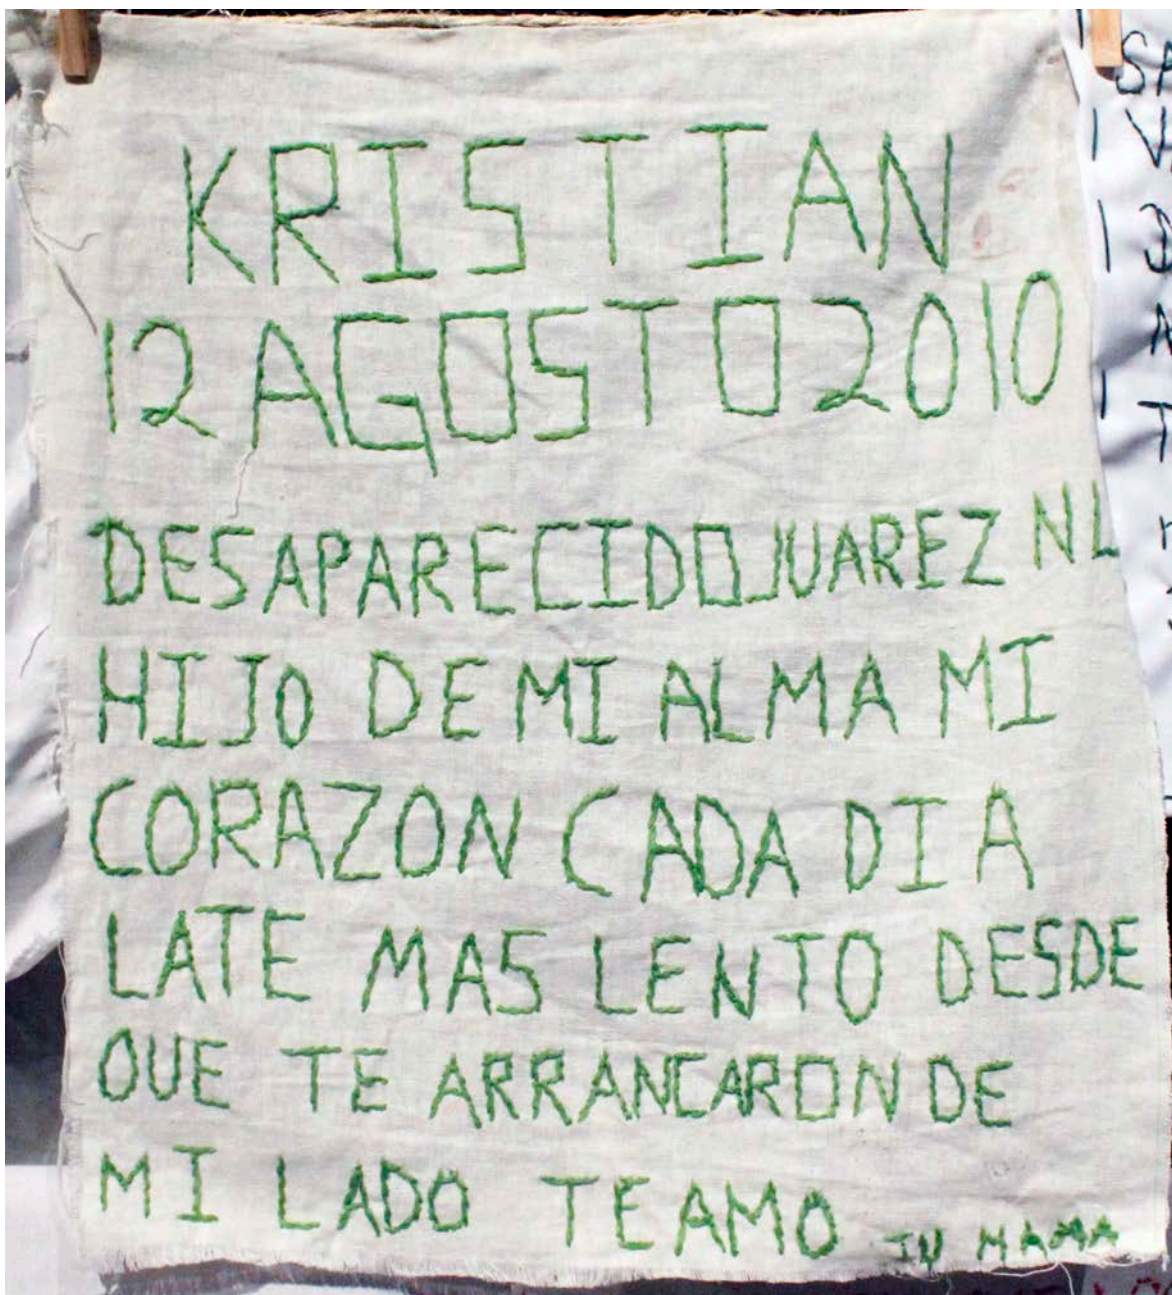 KRISTIAN
12 AGOSTO 2010
DESAPARECIDO JUAREZ NL
HIJO DE MI ALMA MI
CORAZON CADA DIA
LATE MAS LENTO DESDE
QUE TE ARRANCARON DE
MI LADO TE AMO TU MAMA